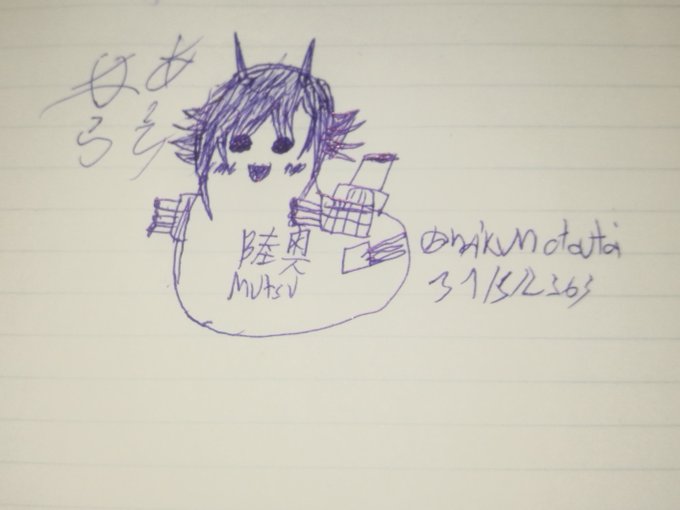 あら
あら
陸奥
MUTSU
31/5/2563